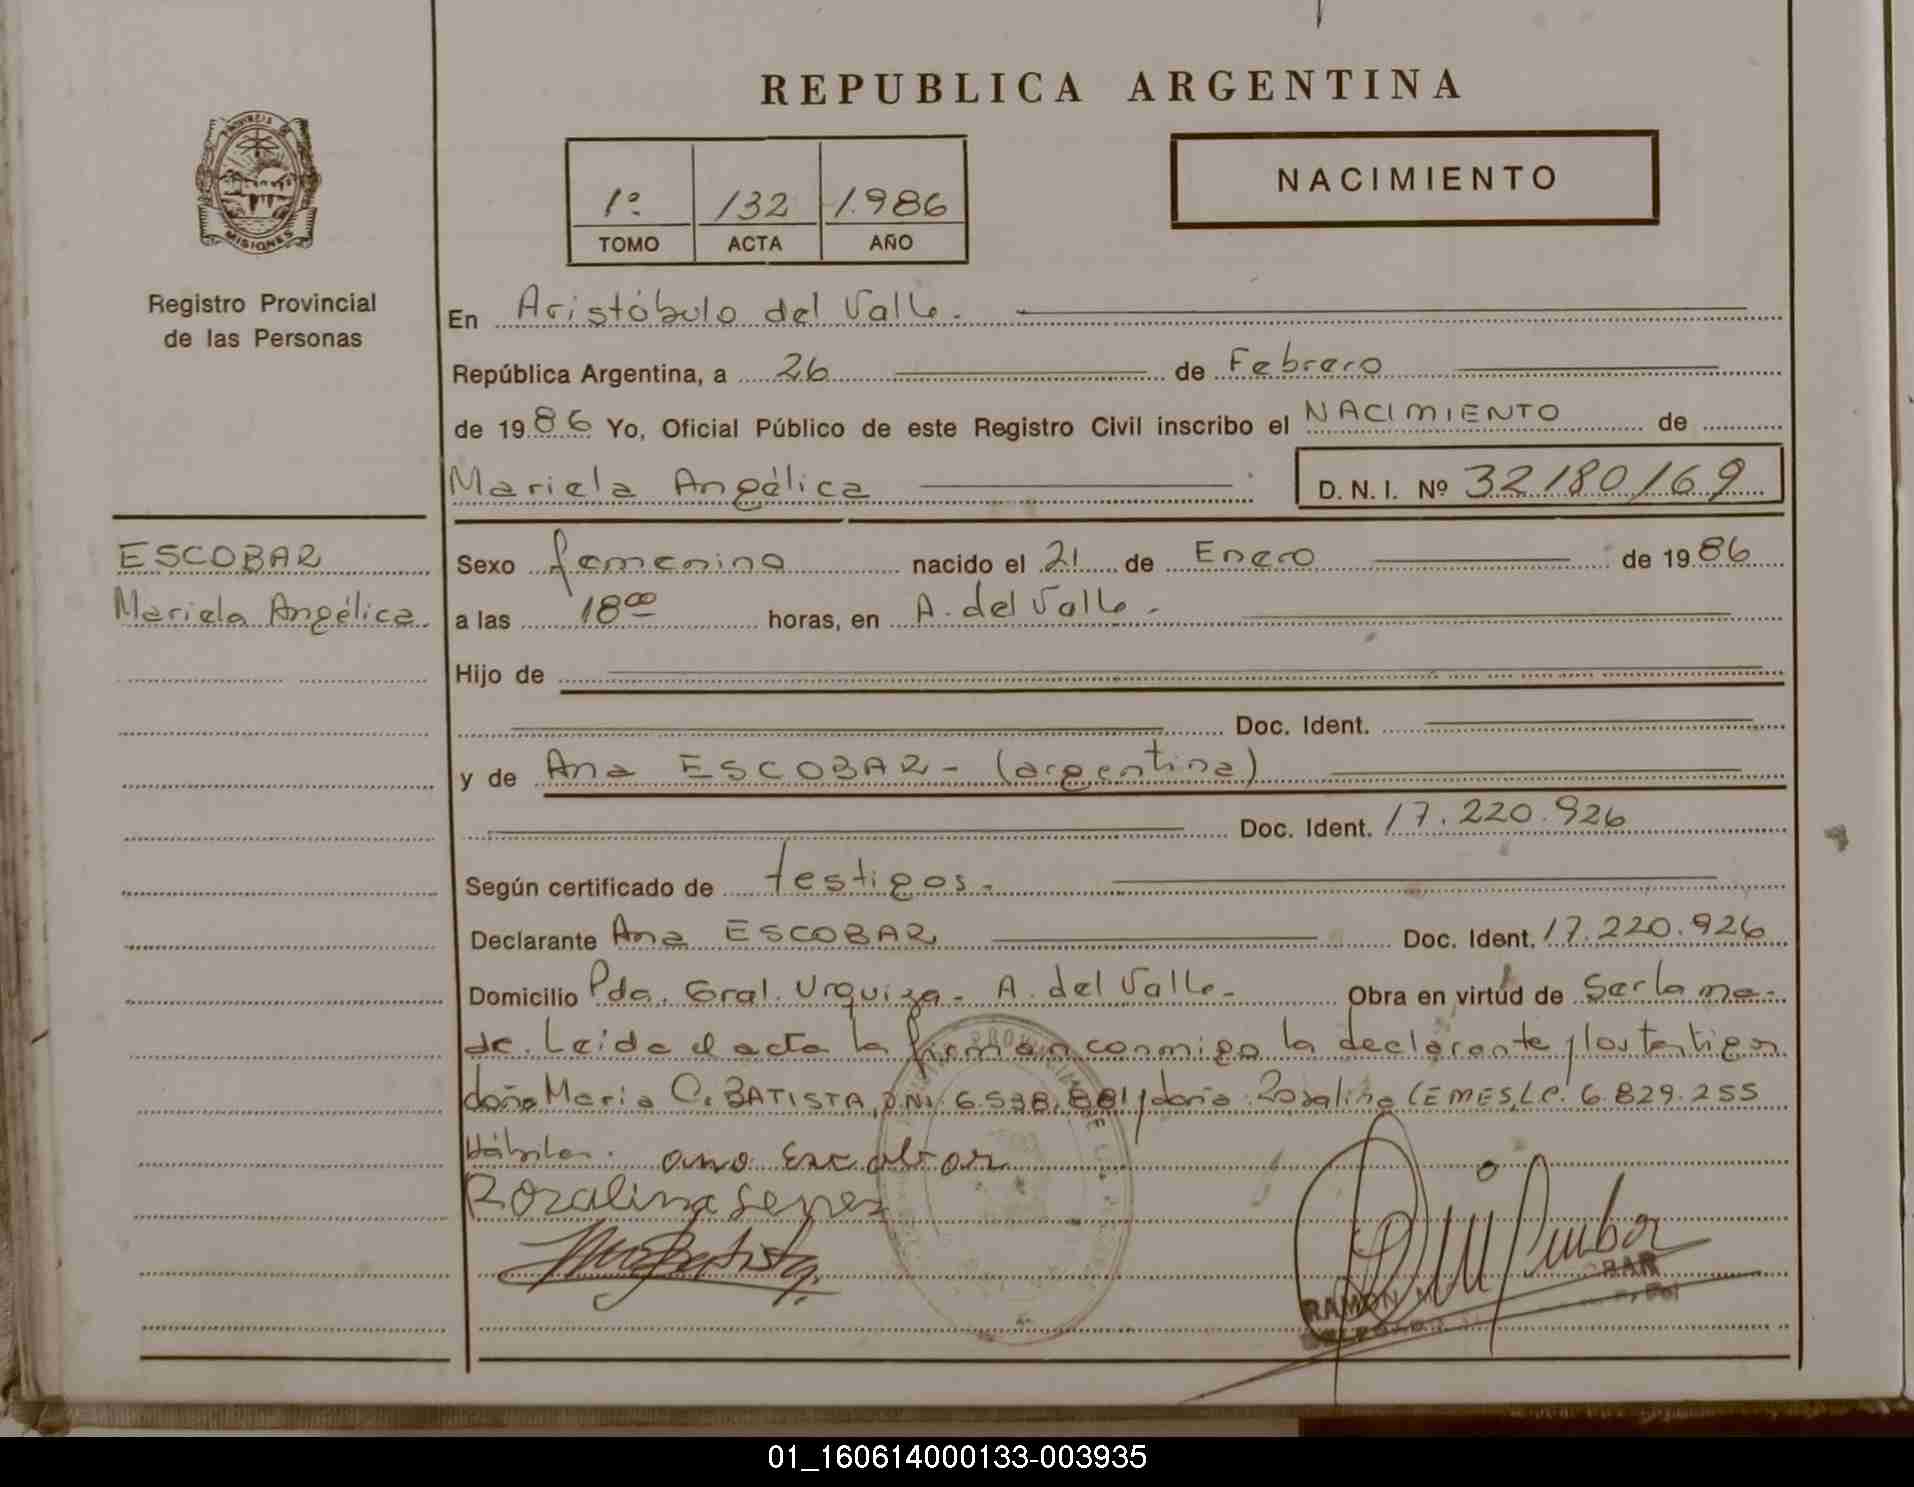 REPUBLICA ARGENTINA
PROVINCIA DE
MISIONES
Registro Provincial
de las Personas
1º 132 1.986
TOMO ACTA AÑO
NACIMIENTO
En Aristóbulo del Valle.
República Argentina, a 26 de Febrero
de 1986 Yo, Oficial Público de este Registro Civil inscribo el NACIMIENTO de
Mariela Angélica D. N. I. Nº 32180169
ESCOBAR
Mariela Angélica
Sexo femenino nacido el 21 de Enero de 1986
a las 18 00 horas, en A. del Valle.
Hijo de
Doc. Ident.
y de Ana ESCOBAR - (argentina)
Doc. Ident. 17.220.926
Según certificado de testigos.
Declarante Ana ESCOBAR Doc. Ident. 17.220.926
Domicilio Pda. Gral. Urquiza - A. del Valle - Obra en virtud de ser la ma-
dre. Leida el acta la firman conmigo la declarante y los testigos
doña María C. BATISTA, DNI. 6.538.881 y doña Rosalina LEMES, L.C. 6.829.255
Hábiles.
Rozalina
RAMON
01_160614000133-003935